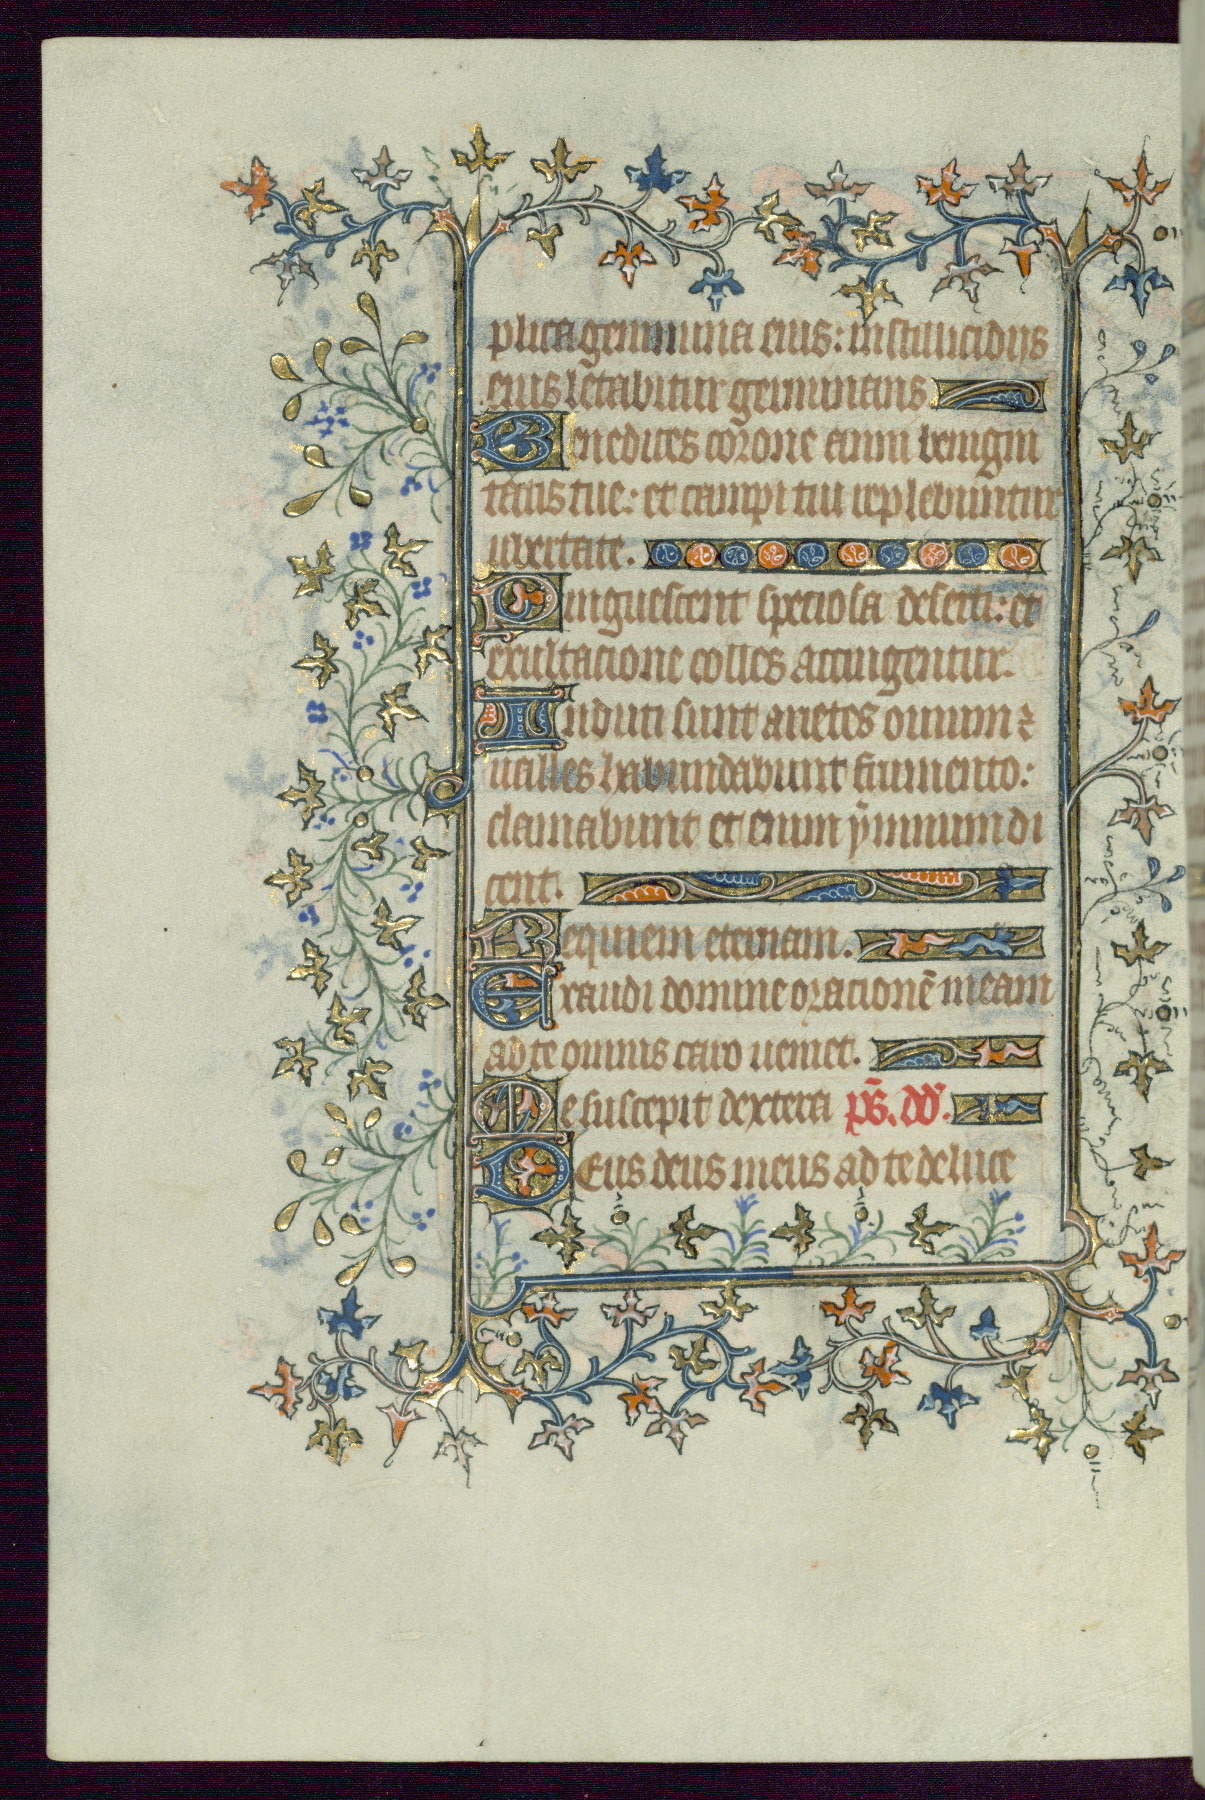 plica genimina eius: in stillicidijs
eius lẽtabitur germinans
Benedices corone anni benigni
tatis tue: et campi tui replebuntur
ubertate.
Pinguescent speciosa deserti: et
exultacione colles accingentur.
Induti sunt arietes ouium ⁊
ualles habundabunt frumento:
clamabunt et enim ẏmnum di
cent.
Requiem eternam.
Exaudi domine oracionẽ meam
ad te omnis caro ueniet.
Me suscepit dextera p̃s. dd̾.
DEus deus meus ad te de luce